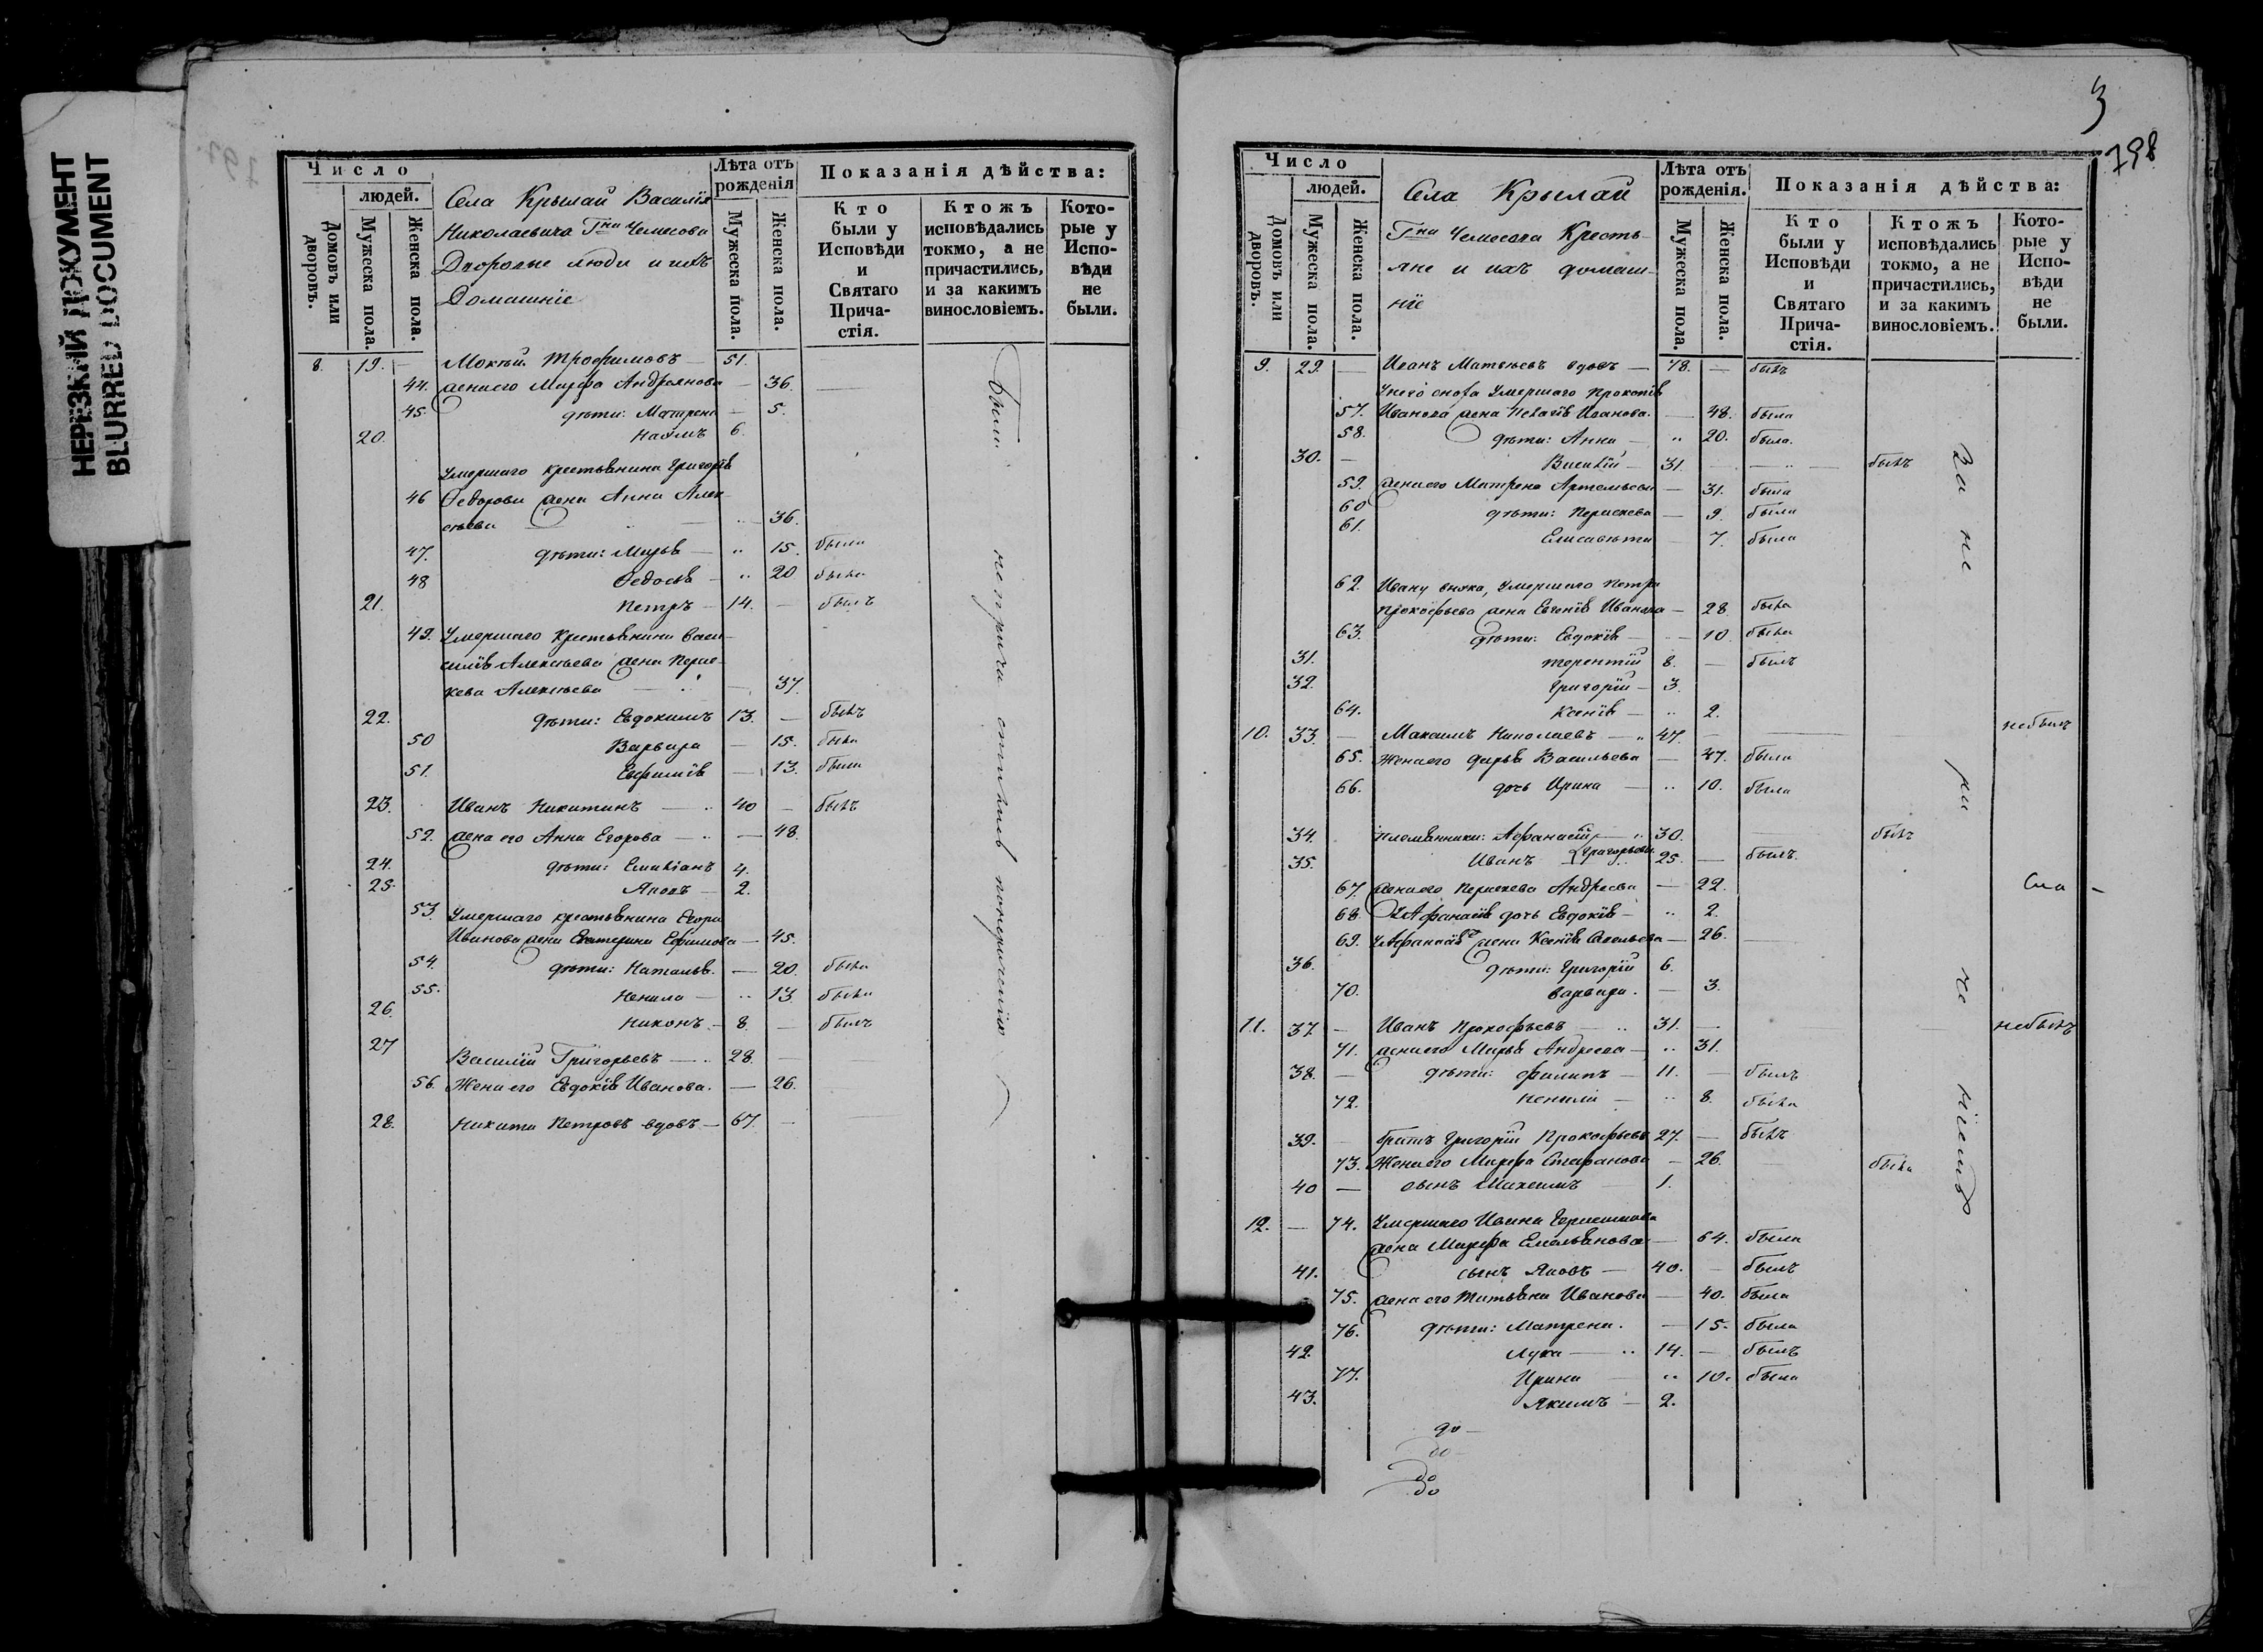 НЕРЕЗКИЙ ДОКУМЕНТ
BLURRED DOCUMENT
Число
людей.
Домовъ или дворовъ.
Мужеска пола.
Женска пола.
Села Крылай Василія
Николаевича Гна Чемесова
Дворовые люди и ихъ
Домашніе
Лѣта отъ рожденія
Мужеска пола.
Женска пола.
Показанія дѣйства:
Кто были у Исповѣди и Святаго Причастія.
Ктожъ исповѣдались токмо, а не причастились, и за какимъ винословіемъ.
Которые у Исповѣди не были.
8. 19. — Мокѣй Трофимовъ — 51.
44. жена его Марфа Андреянова — 36.
45. дѣти: Матрена — 5.
20. Наумъ 6.
Умершаго крестьянина Григорія
46 Ѳедорова жена Анна Алек-
сѣева — 36.
47. дѣти: Марья — 15. была
48 Ѳедосья — 20 была
21. Петръ — 14. — былъ
49. Умершаго крестьянина Васи-
силія Алексѣева жена Парас-
кева Алексѣева — 37.
22. дѣти: Евдокимъ 13. — былъ
50 Варвара — 15. была
51. Евфимія — 13. была
23. Иванъ Никитинъ — 40 — былъ
52. жена его Анна Егорова — 48.
24. дѣти: Емиліанъ 4.
25. Яковъ — 2.
53. Умершаго крестьянина Егора
Иванова жена Екатерина Ефимова — 45.
54. дѣти: Наталья. — 20. была
55. Ненила — 13. была
26. Никонъ — 8. — былъ
27 Василій Григорьевъ — 28. —
56. Жена его Евдокія Иванова. — 26.
28. Никита Петровъ вдовъ — 67. —
3
798
Число
людей.
Домовъ или дворовъ.
Мужеска пола.
Женска пола.
Села Крылай
Гна Чемесова Кресть-
яне и ихъ домаш-
ніе
Лѣта отъ рожденія.
Мужеска пола.
Женска пола.
Показанія дѣйства:
Кто были у Исповѣди и Святаго Причастія.
Ктожъ исповѣдались токмо, а не причастились, и за какимъ винословіемъ.
Которые у Исповѣди не были.
9. 29. — Иванъ Матвѣевъ вдовъ — 78. — былъ
У него сноха Умершаго Прокопія
57. Иванова жена Пелагія Иванова. — 48. была
58. дѣти: Анна — 20. была.
30. — Василій — 31. — былъ
59. жена его Матрена Артемьева — 31. была
60 дѣти: Параскева — 9. была
61. Елисавета 7. была
62. Ивану снаха, Умершаго Петра
Прокофьева жена Евгенія Иванова — 28. была
63. дѣти: Евдокія — 10. была
31. Терентій 8. — былъ
32. Григорій — 3.
64. Ксенія — 2.
10. 33. — Максимъ Николаевъ — 47. — небылъ
65. Жена его Дарья Васильева — 47. была
66. дочь Ирина — 10. была
34. племянники: Афанасій — 30. былъ
35. Иванъ Григорьевы. 25. — былъ.
67. жена его Параскева Андреева — 22.
68. У Афанасія дочь Евдокія — 2.
69. У Афанасія жена Ксенія Савельева — 26.
36. дѣти: Григорій 6.
70. Варвара. — 3.
11. 37 — Иванъ Прокофьевъ — 31. — небылъ
71. жена его Марья Андреева — 31.
38. — дѣти: Филипъ — 11. — былъ
72. Ненила — 8. была
39. — братъ Григорій Прокофьевъ 27. — былъ
73. Жена его Марфа Стафанова — 26. была
40 — сынъ Максимъ 1.
12. — 74. Умершаго Ивана Герасимова
жена Марфа Емельянова — 64. была
41. сынъ Яковъ — 40. — былъ
75. жена его Татьяна Иванова — 40. была
76. дѣти: Матрена. — 15. была
42. Лука — 14. — былъ
77. Ирина 10. была
43. Якимъ — 2.
до
до
до
до